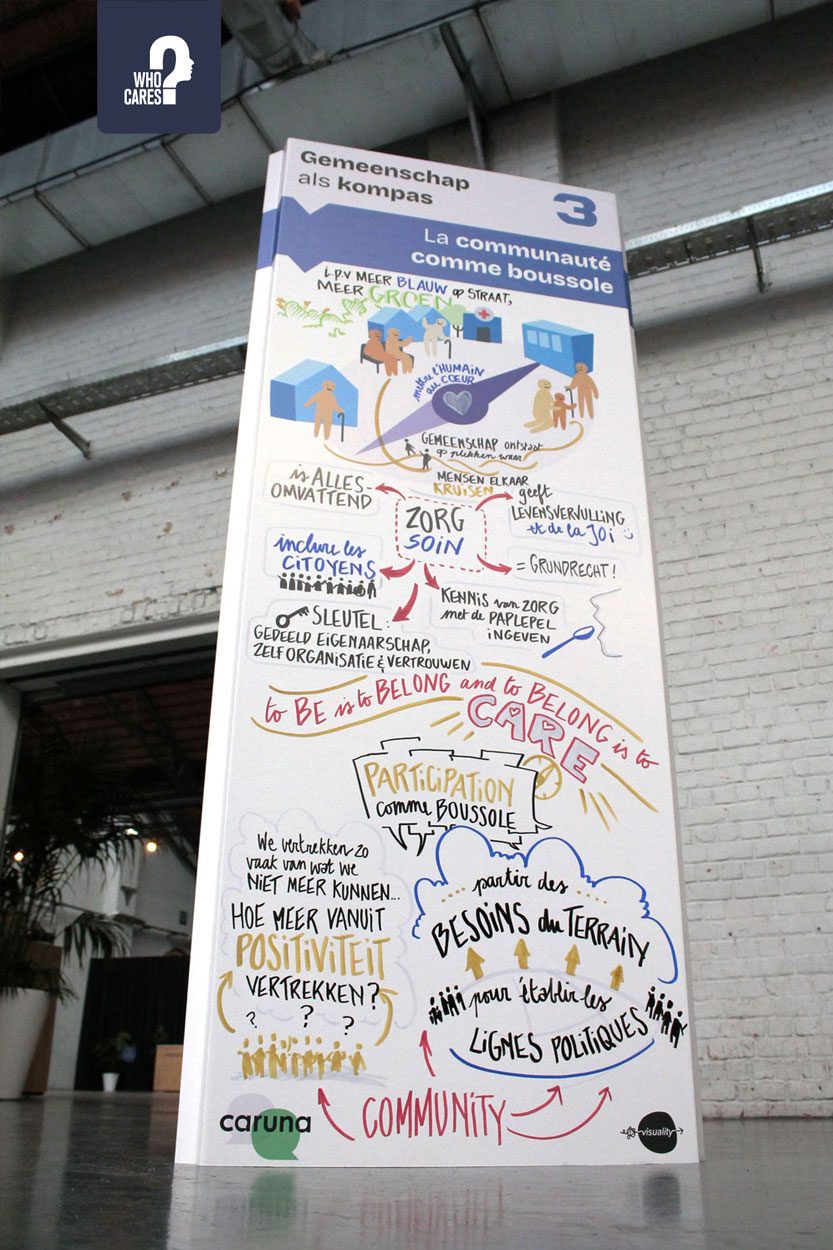 WHO
CARES?
Gemeenschap
als kompas
3
La communauté
comme boussole
i.p.v MEER BLAUW op STRAAT,
MEER GROEN
mettre l'HUMAIN
au COEUR
GEMEENSCHAP ontstaat
op plekken waar
MENSEN ELKAAR
KRUISEN
is ALLES-
OMVATTEND
ZORG
SOIN
geeft
LEVENSVERVULLING
et de la JOi :)
inclure les
CiTOYENS
= GRUNDRECHT!
KENNIS van ZORG
met de PAPLEPEL
iNGEVEN
SLEUTEL:
GEDEELD EIGENAARSCHAP,
ZELFORGANISATIE & VERTROUWEN
to BE is to BELONG and to BELONG is to
CARE
PARTiCiPATiON
comme BOUSSOLE
We vertrekken zo
vaak van wat we
NiET MEER KUNNEN...
HOE MEER VANUIT
POSiTiViTEiT
VERTREKKEN?
? ? ?
... partir des ...
BESOiNS du TERRAiN
pour établir les
LiGNES POLiTiQUES
COMMUNITY
caruna
visuality